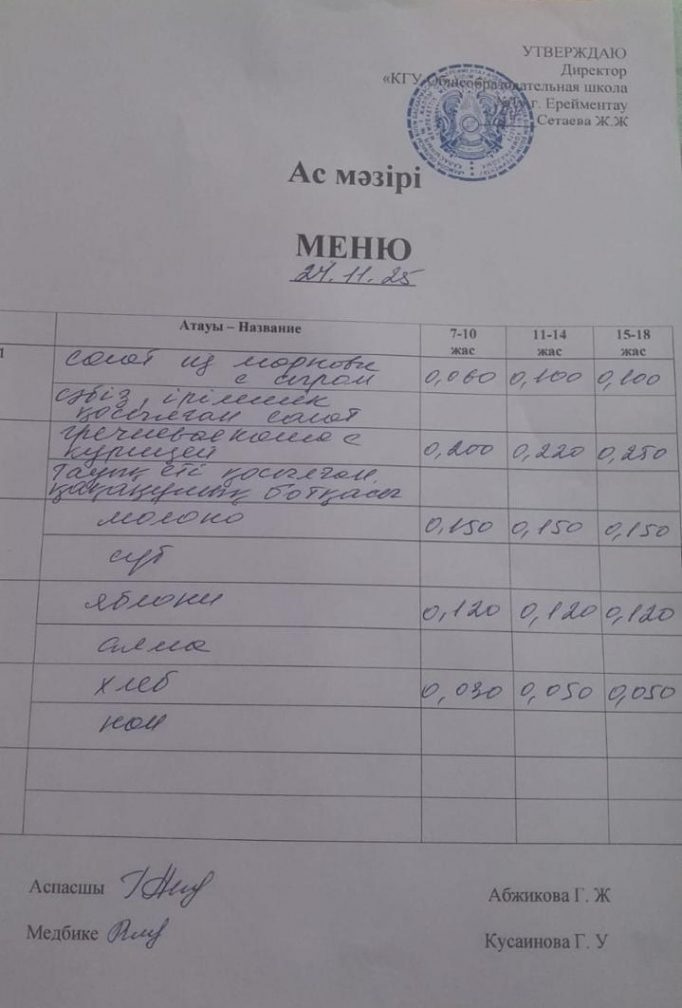 УТВЕРЖДАЮ
Директор
«КГУ Общеобразовательная школа
г. Ерейментау
Сетаева Ж.Ж
Ас мәзірі
МЕНЮ
24.11.25
Атауы – Название 7-10 жас 11-14 жас 15-18 жас
1 салат из моркови
с сыром 0,060 0,100 0,100
сәбіз, ірімшік
қосылған салат
гречневая каша с
курицей 0,200 0,220 0,250
тауық еті қосылған
қарақұмық ботқасы
молоко 0,150 0,150 0,150
сүт
яблоки 0,120 0,120 0,120
алма
хлеб 0,030 0,050 0,050
нан
Аспасшы Абжикова Г. Ж
Медбике Кусаинова Г. У